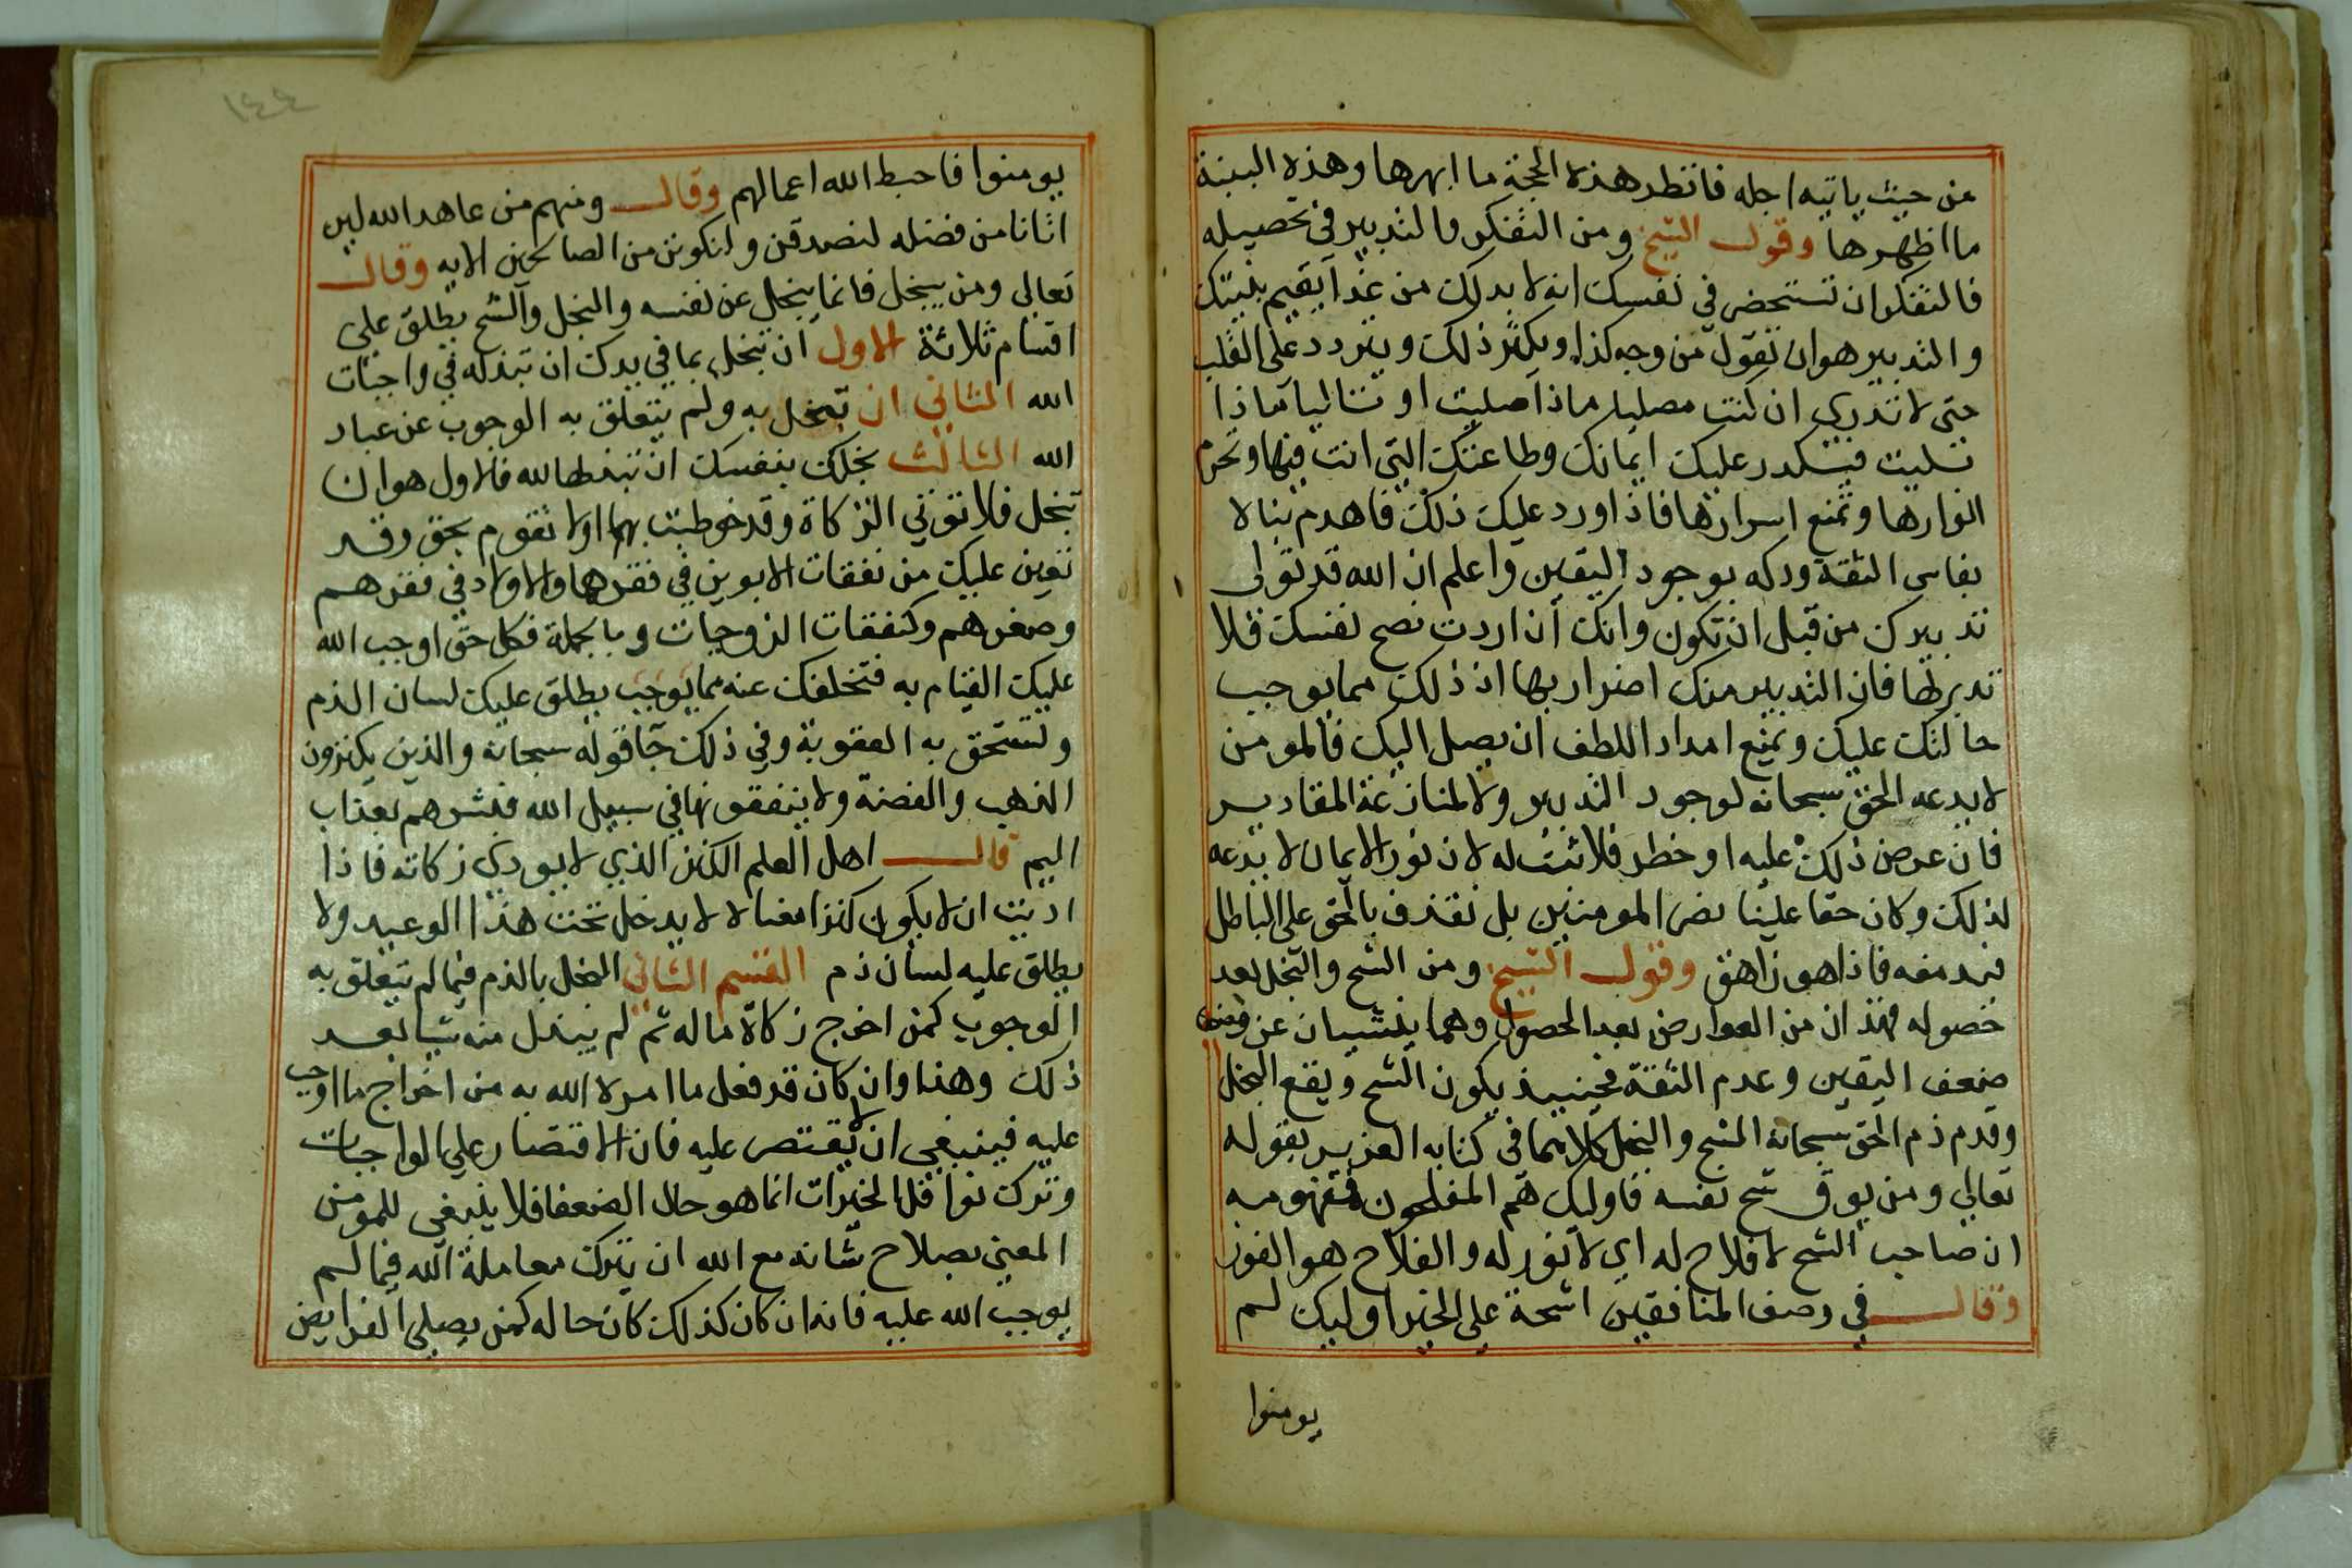 من حيث ياتيه اجله فانظر هذه الحجة ما ابهرها وهذه البينة
ما اظهرها وقول الشيخ ومن التفكر والتدبير في تحصيله
فالتفكر ان تستحضر في نفسك انه لا بد لك من غذا يقيم بنيتك
والتدبير هو ان تقول من وجه كذا ويكثر ذلك ويتردد على القلب
حتى لا تدري ان كنت مصليا ماذا صليت او تاليا ماذا
تليت فيتكدر عليك ايمانك وطاعتك التي انت فيها وتحرم
انوارها وتمنع اسرارها فاذا ورد عليك ذلك فاهدم بناه
بفاس الثقة ودكه بوجود اليقين واعلم ان الله قد تولى
تدبيرك من قبل ان تكون وانك ان اردت نصح نفسك فلا
تدبر لها فان التدبير منك اضرار بها اذ ذلك مما يوجب
حالتك عليك ويمنع امداد اللطف ان يصل اليك فالمومن
لا يدعه الحق سبحانه لوجود التدبير ولا لمنازعة المقادير
فان عرض ذلك عليه او خطر فلا ثبت له لان نور الايمان لا يدعه
لذلك وكان حقا علينا نصر المومنين بل نقذف بالحق على الباطل
فيدمغه فاذا هو زاهق وقول الشيخ ومن الشح والبخل بعد
حصوله فهذان من العوارض بعد الحصول وهما ينشيان عن
ضعف اليقين وعدم الثقة فحينيذ يكون الشح ويقع البخل
وقدم ذم الحق سبحانه الشح والبخل كلاهما في كتابه العزيز بقوله
تعالي ومن يوق شح نفسه فاوليك هم المفلحون فمفهومه
ان صاحب الشح لا فلاح له اي لا نور له والفلاح هو الفوز
وقال في وصف المنافقين اشحة علي الخير اوليك لم
يومنوا
١٤٤
يومنوا فاحبط الله اعمالهم وقال ومنهم من عاهد الله لين
اتانا من فضله لنصدقن ولنكونن من الصالحين الايه وقال
تعالي ومن يبخل فانما يبخل عن نفسه والبخل والشح يطلق علي
اقسام ثلاثة الاول ان تبخل بما في يدك ان تبذله في واجبات
الله الثاني ان تبخل به ولم يتعلق به الوجوب عن عباد
الله الثالث بخلك بنفسك ان تبذلها لله فالاول هو ان
تبخل فلا توتي الزكاة وقد خوطبت بها اولا تقوم بحق وقد
تعين عليك من نفقات الابوين في فقرهما والاولاد في فقرهم
وصغرهم وكنفقات الزوجات وبالجملة فكل حق اوجب الله
عليك القيام به فتخلفك عنه مما يوجب يطلق عليك لسان الذم
وتستحق به العقوبة وفي ذلك جا قوله سبحانه والذين يكنزون
الذهب والفضة ولا ينفقونها في سبيل الله فبشرهم بعذاب
اليم قال اهل العلم الكنز الذي لا يودي زكاته فاذا
اديت ان لا يكون كنزا معناه لا يدخل تحت هذا الوعيد ولا
يطلق عليه لسان ذم القسم الثاني البخل بالذم فيما لم يتعلق به
الوجوب كمن اخرج زكاة ماله ثم لم يبذل منه شيا بعد
ذلك وهذا وان كان قد فعل ما امره الله به من اخراج ما اوجب
عليه فينبغي ان لا يقتصر عليه فان الاقتصار علي الواجبات
وترك نوافل الخيرات انما هو حال الضعفا فلا ينبغي للمومن
المعني بصلاح شانه مع الله ان يترك معاملة الله فيما لم
يوجب الله عليه فانه ان كان كذلك كان حاله كمن يصلي الفرايض